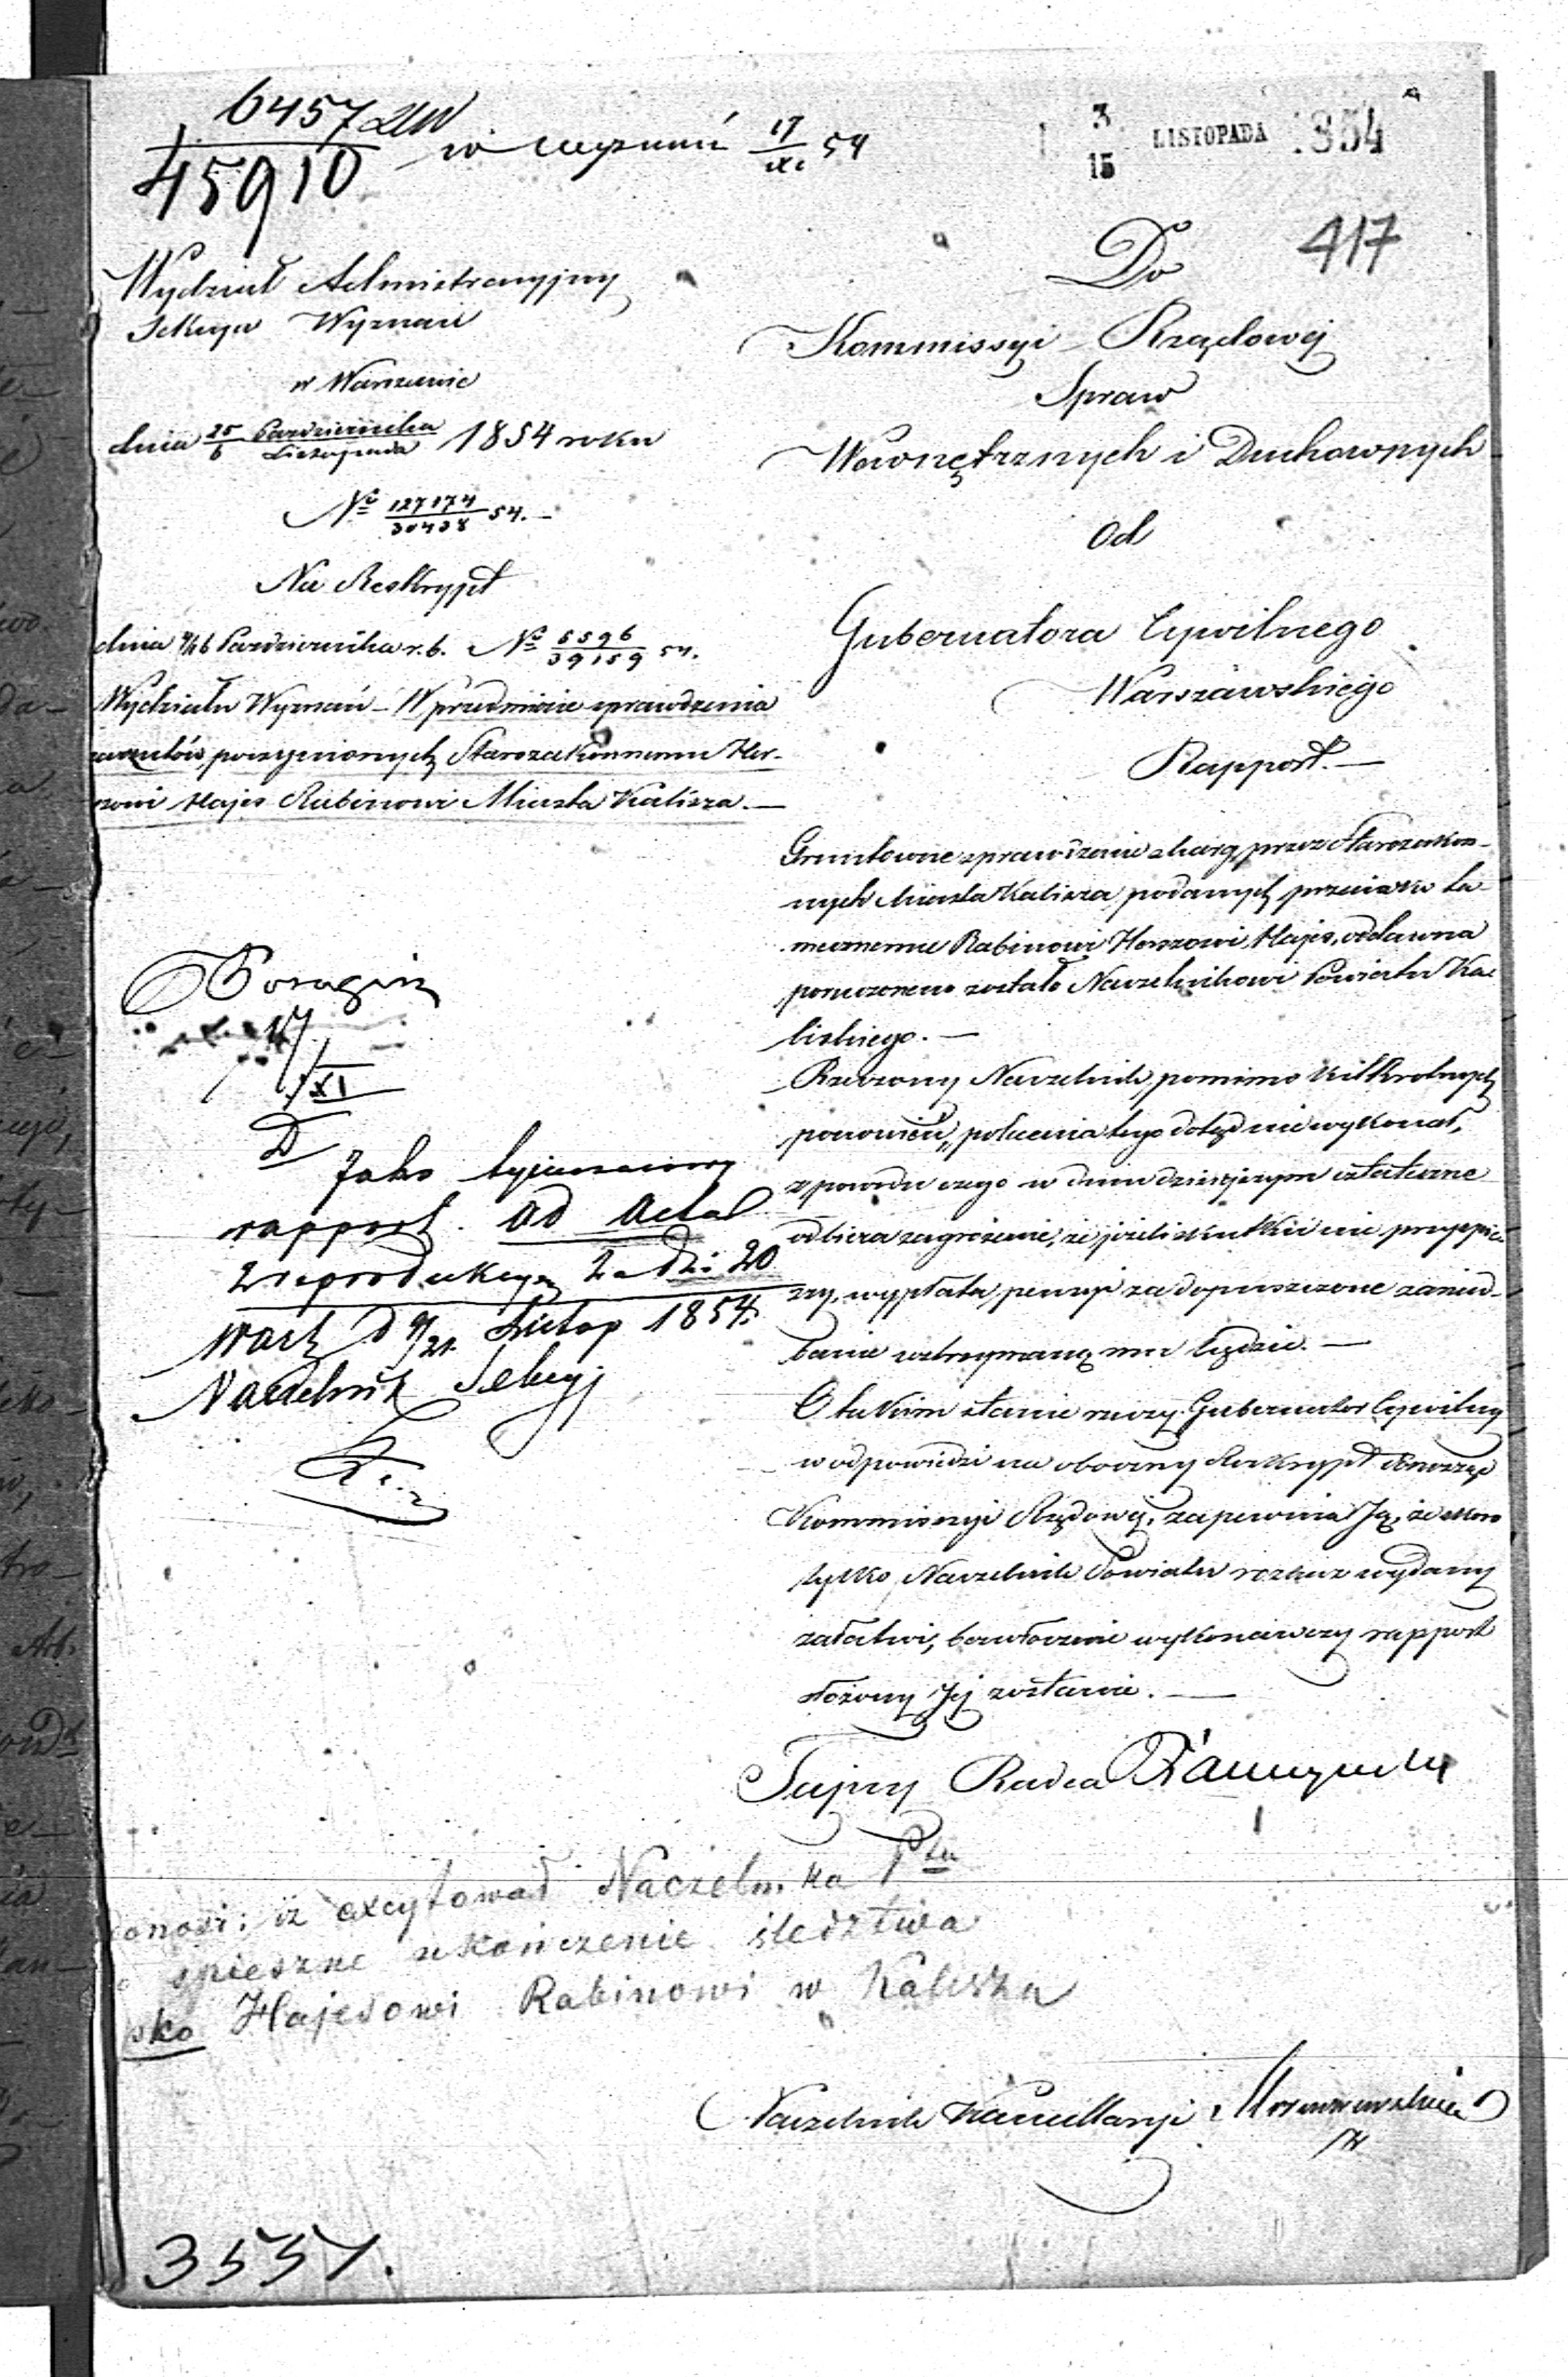 6457
45910
w 17/XI 54
3/15 LISTOPADA 1854
417
Wydział Administracyjny
Sekcya Wyznań
w Warszawie
dnia 25/6 Października/Listopada 1854 roku
No 127174/30438 54.—
Na Reskrypt
dnia 4/16 Października r.b. No 5596/39159 54.
Wydziału Wyznań – W przedmiocie sprawdzenia
zarzutów, poczynionych Starozakonnemu Her-
szowi Hajes Rabinowi Miasta Kalisza.—
Do
Kommissyi Rządowej
Spraw
Wewnętrznych i Duchownych
Od
Gubernatora Cywilnego
Warszawskiego
Rapport.—
Gruntowne sprawdzenie skarg, przez Starozakon-
nych Miasta Kalisza podanych przeciwko ta-
mecznemu Rabinowi Herszowi Hajes, oddawna
poruczonem zostało Naczelnikowi Powiatu Ka-
liskiego.—
Rzeczony Naczelnik, pomimo kilkkrotnych
ponowień, polecenia tego dotąd nie wykonał,
z powodu czego w dniu dzisiejszym ostateczne
odbiera zagrożenie, że jeżeli skutku nie przyspie-
szy, wypłata pensyi za dopuszczone zanied-
banie wstrzymaną mu będzie.—
O takim stanie rzeczy Gubernator Cywilny
w odpowiedzi na oboczny Reskrypt donosząc
Kommissyi Rządowej, zapewnia Ją, że skoro
tylko Naczelnik Powiatu rozkaz wydany
załatwi, bezzwłocznie wykonawczy rapport
złożony Jej zostanie.—
Tajny Radca
17/XI
D
Jako tymczasowy
rapport. ad acta
z reprodukcyą za dni 20
Warsz d 9/21 Listop 1854.
Naczelnik Sekcyj
donosi; iż excytował Naczelnika Ptu
o spieszne ukończenie śledztwa
wko Hajesowi Rabinowi w Kaliszu
Naczelnik Kancellaryi
3557.